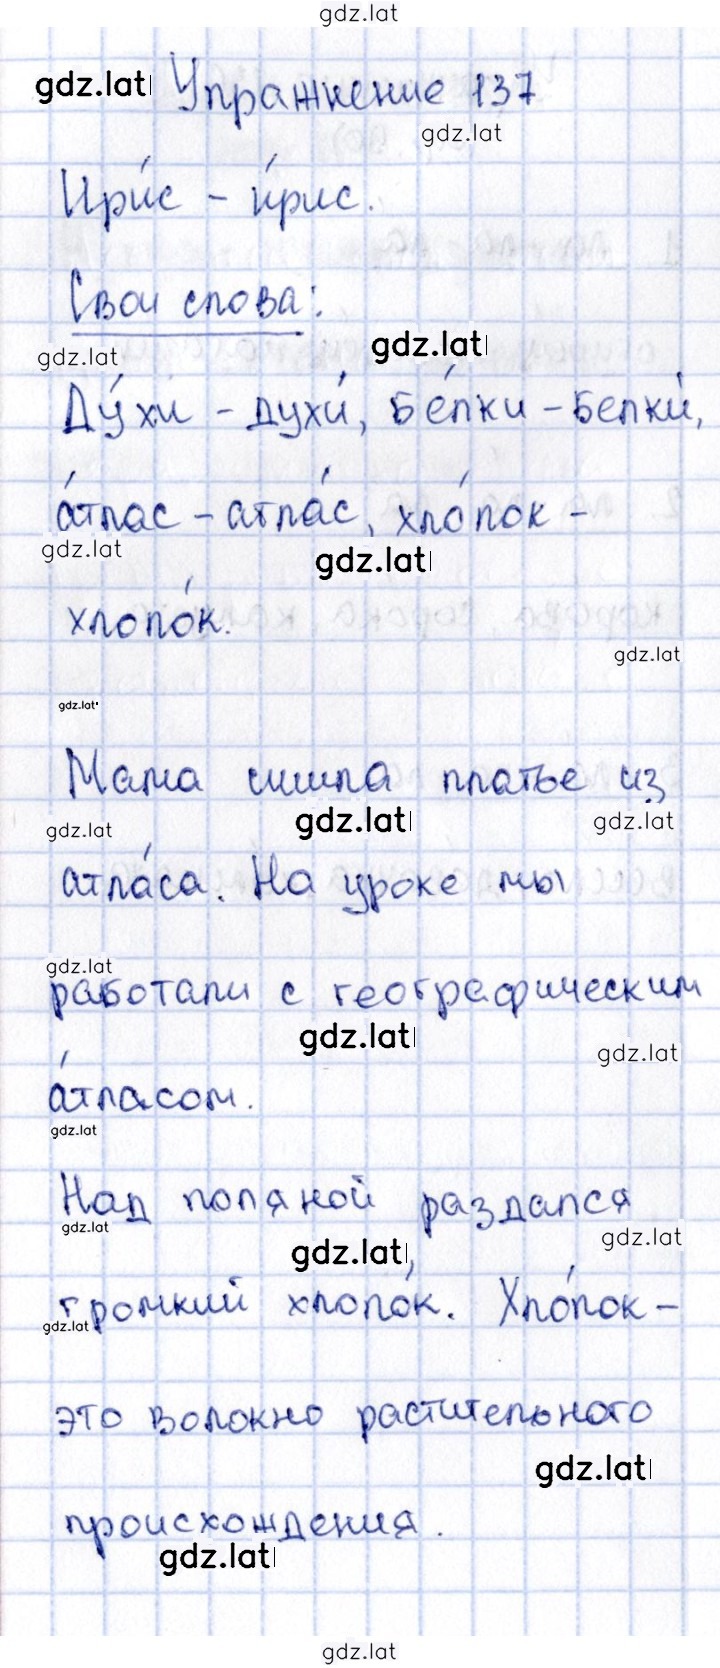 gdz.lat
gdz.lat Упражнение 137
gdz.lat
Ири́с - и́рис.
Свои слова:
gdz.lat gdz.lat
Ду́хи - духи́, бе́лки - белки́,
а́тлас - атла́с, хло́пок -
gdz.lat gdz.lat
хлопо́к.
gdz.lat
gdz.lat
Мама сшила платье из
gdz.lat gdz.lat gdz.lat
атла́са. На уроке мы
gdz.lat
работали с географическим
gdz.lat gdz.lat
а́тласом.
gdz.lat
Над поляной раздался
gdz.lat gdz.lat gdz.lat
громкий хлопо́к. Хло́пок -
gdz.lat
это волокно растительного
gdz.lat
происхождения.
gdz.lat
gdz.lat